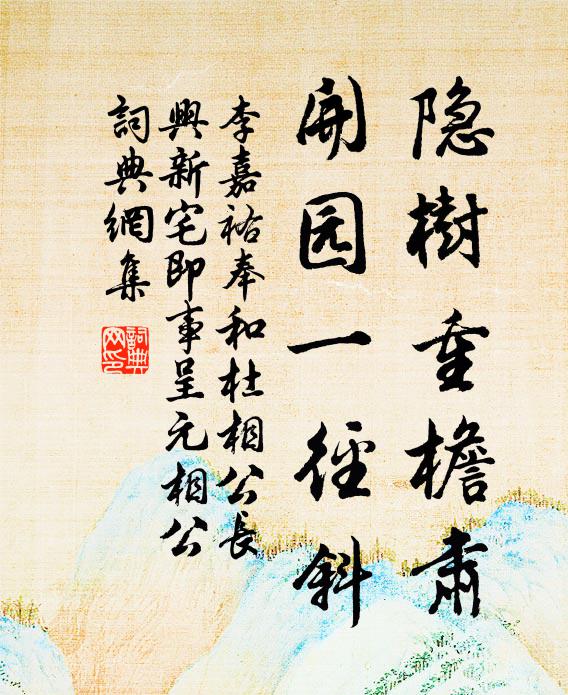 隐樹重檐肅
開园一径斜
李嘉祐奉和杜相公長
興新宅即事呈元相公
詞典網集
詞典网印